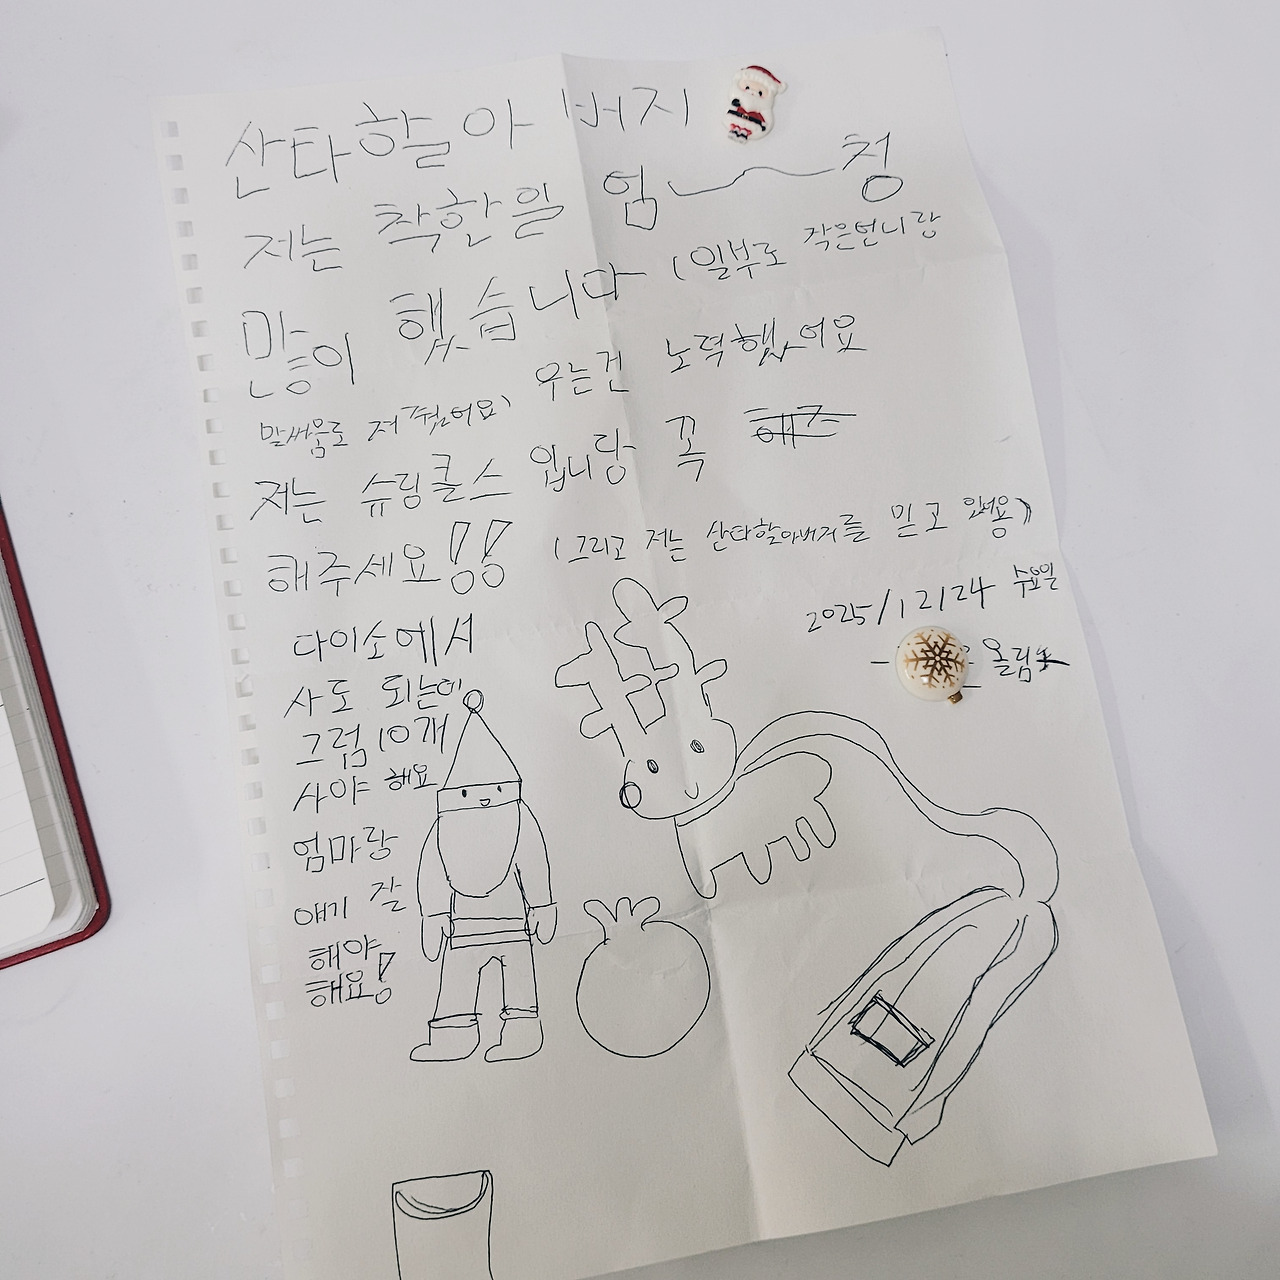 산타할아버지
저는 착한일 엄~청
많이 했습니다 (일부로 작은언니랑
말싸움로 저줬어요) 우는건 노력했어요
저는 슈링클스 입니당 꼭
해주세요!! (그리고 저는 산타할아버지를 믿고 있써용)
2025/12/24 수요일
올림
다이소에서
사도 되는데
그럼 10개
사야 해요
엄마랑
얘기 잘
해야
해요!